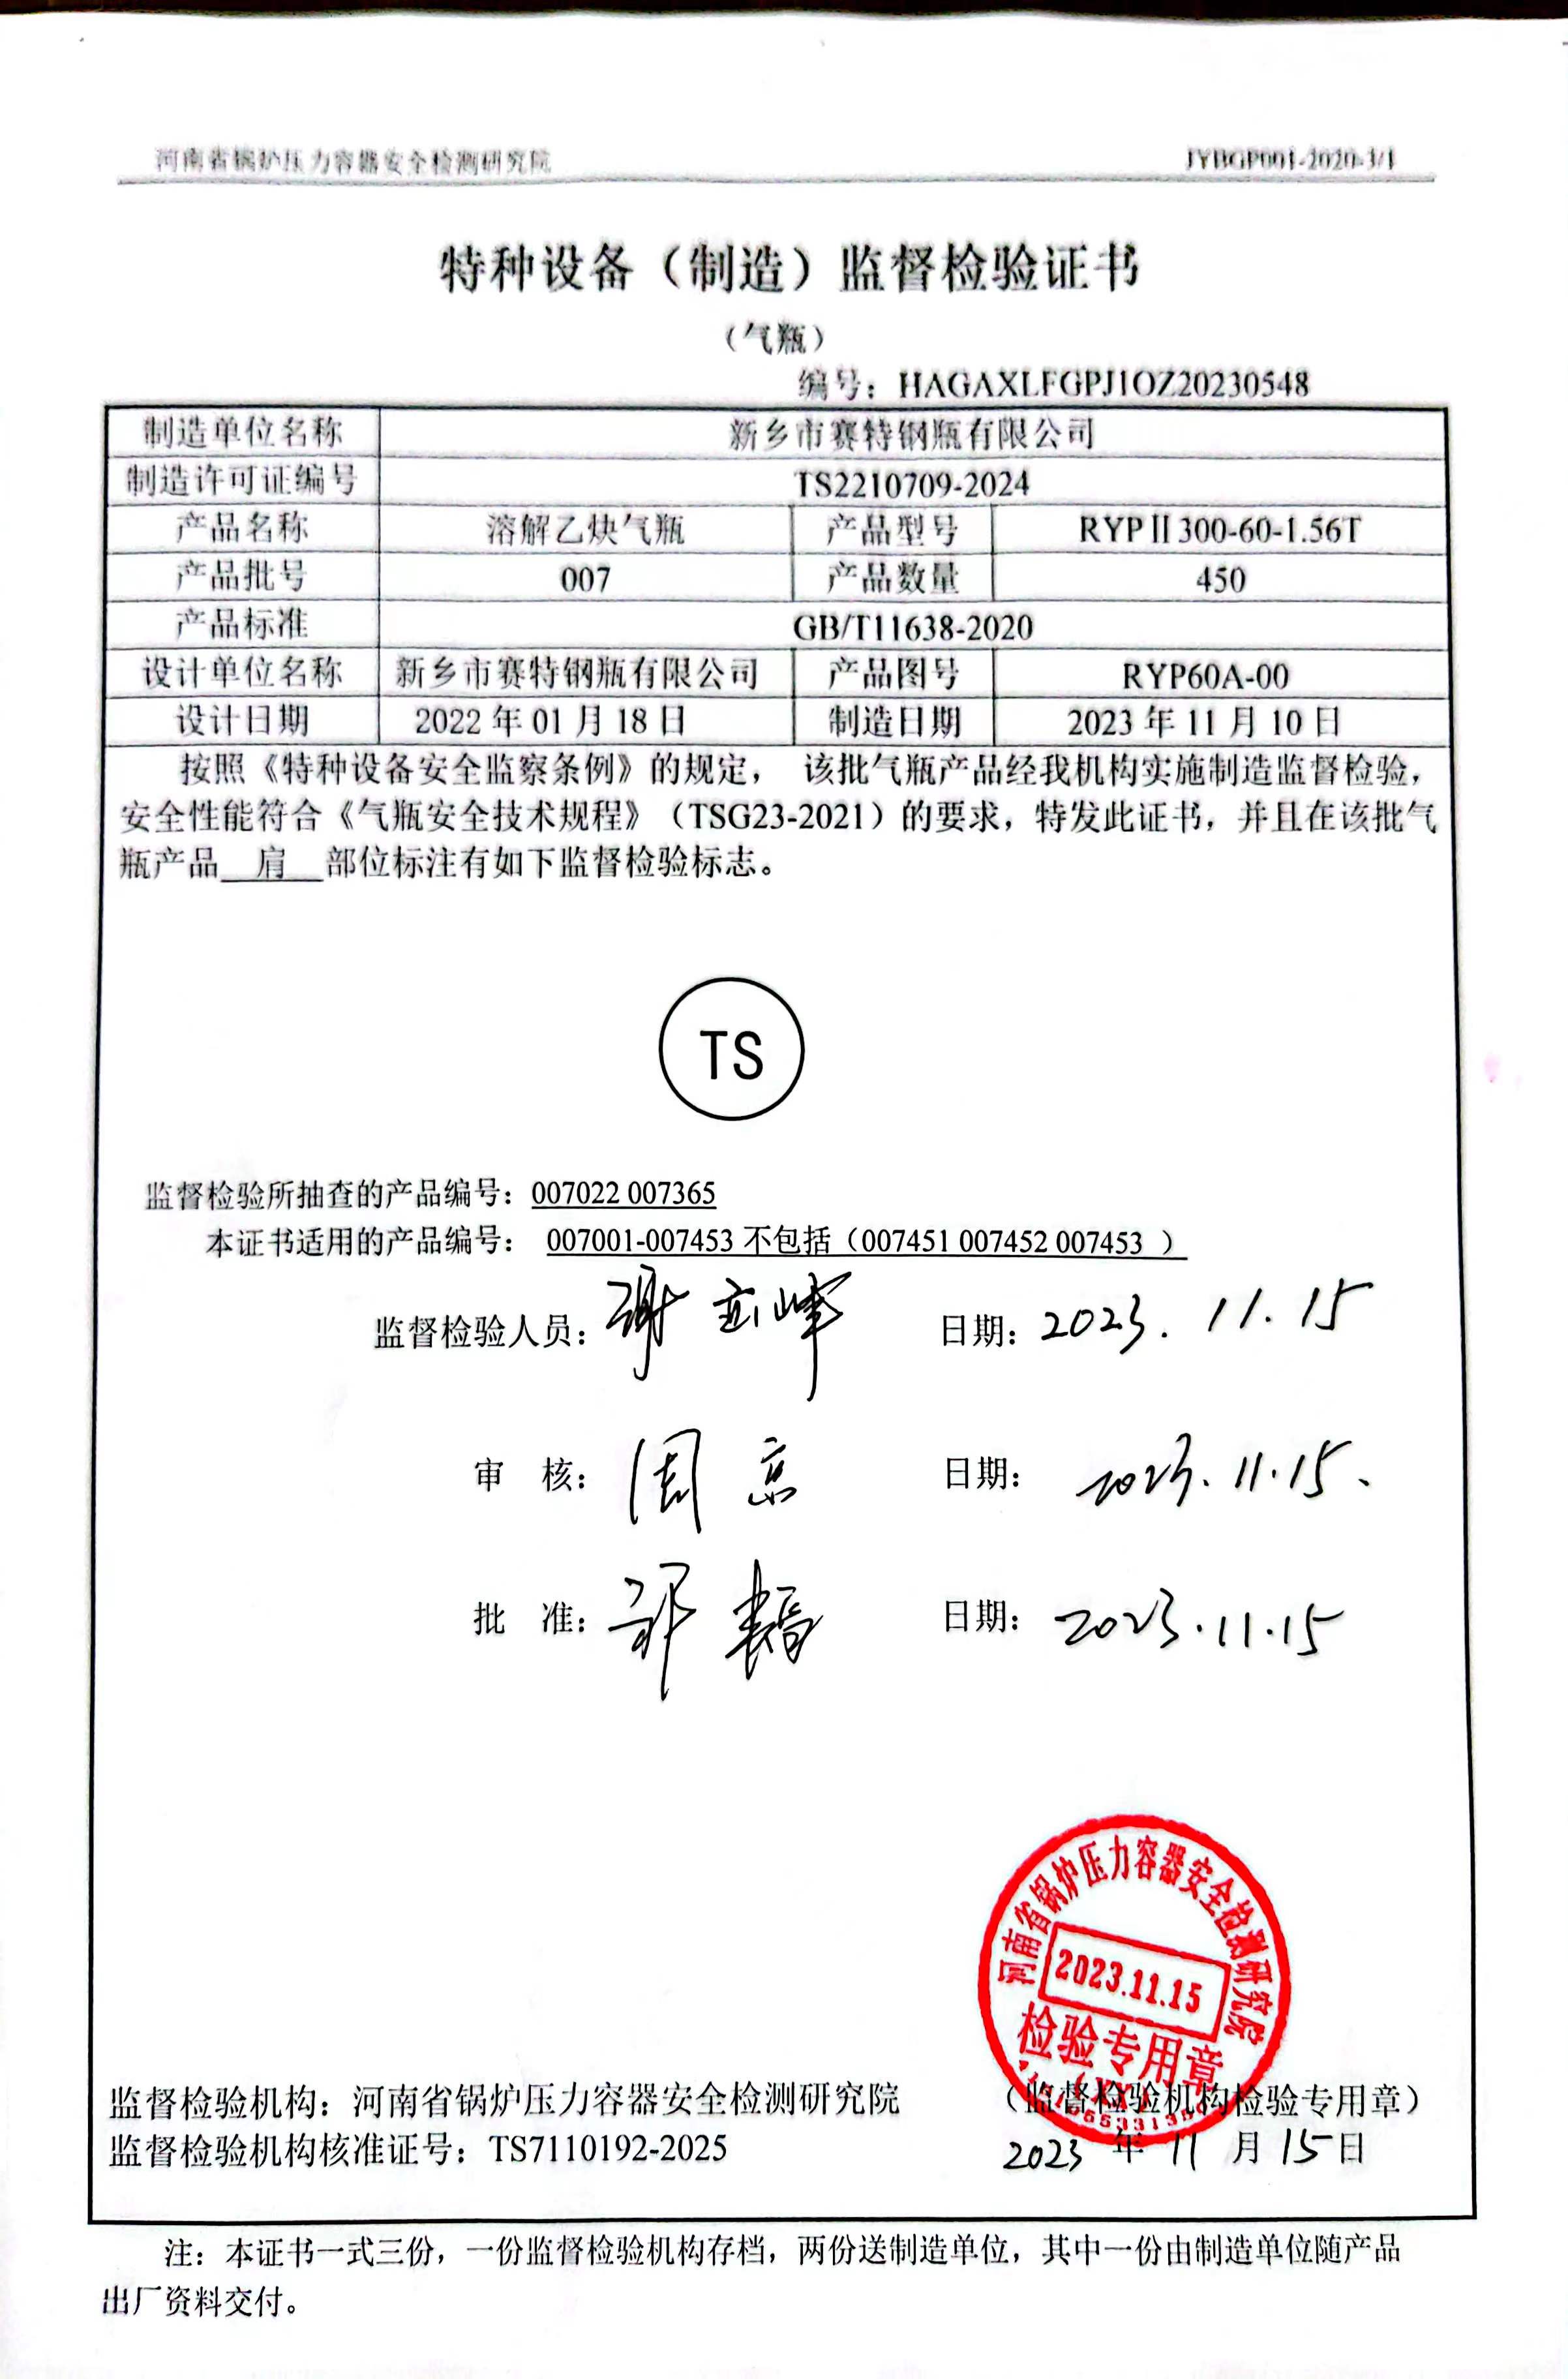 河南省锅炉压力容器安全检测研究院 JYBGP001-2020-3/1
特种设备（制造）监督检验证书
（气瓶）
编号：HAGAXLFGPJ1OZ20230548
制造单位名称 新乡市赛特钢瓶有限公司
制造许可证编号 TS2210709-2024
产品名称 溶解乙炔气瓶 产品型号 RYPⅡ300-60-1.56T
产品批号 007 产品数量 450
产品标准 GB/T11638-2020
设计单位名称 新乡市赛特钢瓶有限公司 产品图号 RYP60A-00
设计日期 2022年01月18日 制造日期 2023年11月10日
按照《特种设备安全监察条例》的规定， 该批气瓶产品经我机构实施制造监督检验，
安全性能符合《气瓶安全技术规程》（TSG23-2021）的要求，特发此证书，并且在该批气
瓶产品 肩 部位标注有如下监督检验标志。
TS
监督检验所抽查的产品编号：007022 007365
本证书适用的产品编号： 007001-007453 不包括（007451 007452 007453 ）
监督检验人员： 日期：2023.11.15
审 核：周京 日期：2023.11.15.
批 准： 日期：2023.11.15
河南省锅炉压力容器安全检测研究院
2023.11.15
检验专用章
监督检验机构：河南省锅炉压力容器安全检测研究院 （监督检验机构检验专用章）
监督检验机构核准证号：TS7110192-2025 2023年11月15日
注：本证书一式三份，一份监督检验机构存档，两份送制造单位，其中一份由制造单位随产品
出厂资料交付。